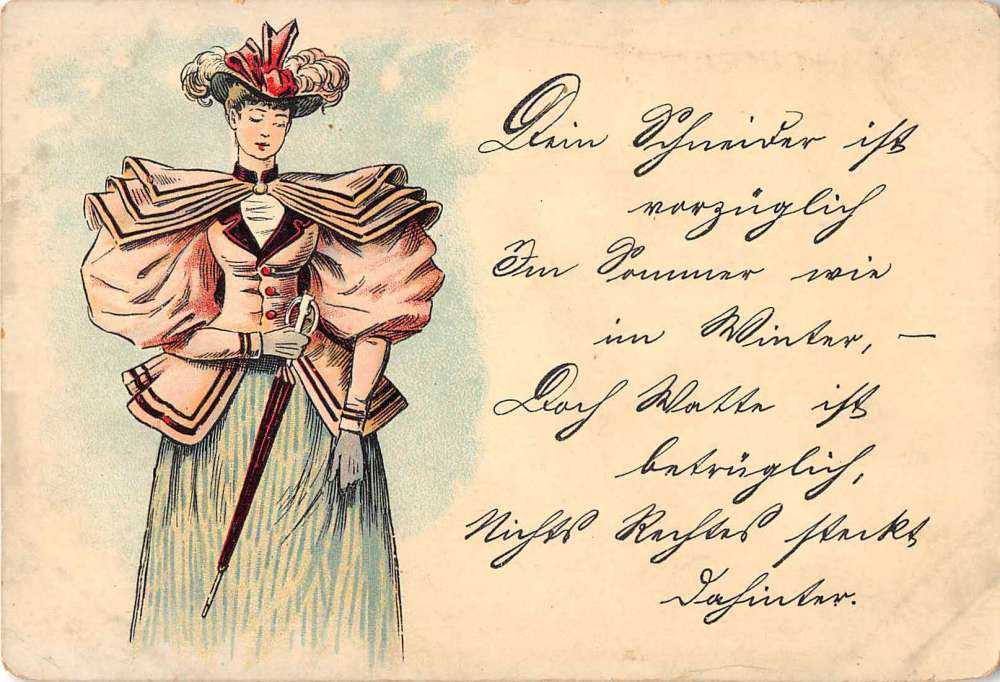 Dein Schneider ist
vorzüglich
Im Sommer wie
im Winter, —
Doch Watte ist
betrüglich,
Nichts Rechtes steckt
dahinter.